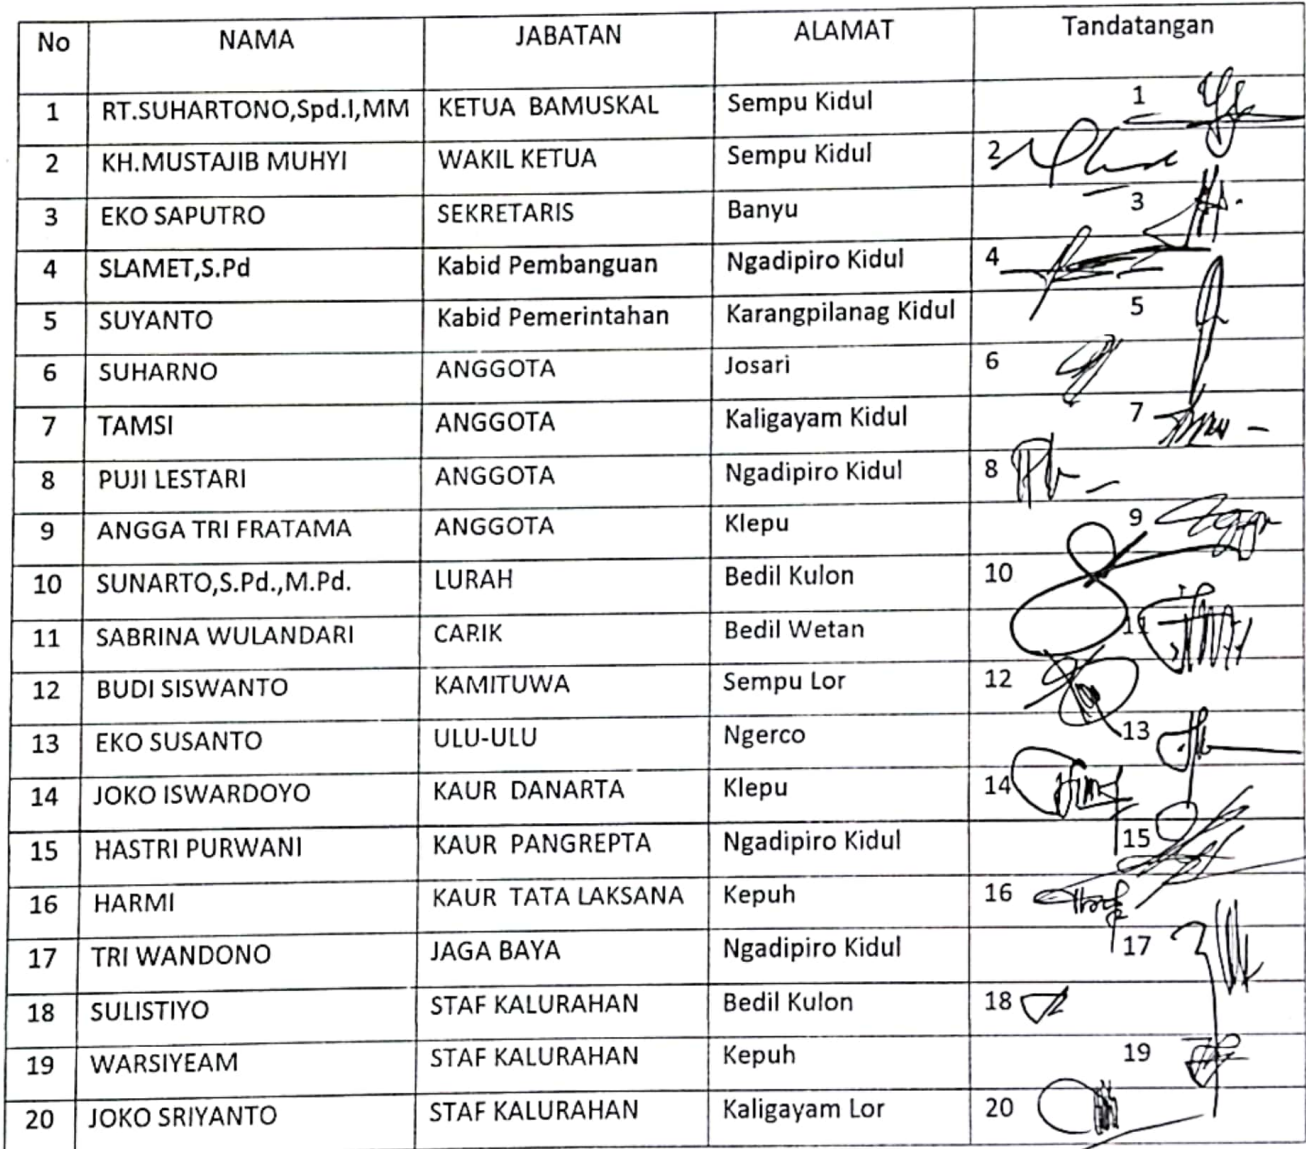 No NAMA JABATAN ALAMAT Tandatangan
1 RT.SUHARTONO,Spd.I,MM KETUA BAMUSKAL Sempu Kidul 1
2 KH.MUSTAJIB MUHYI WAKIL KETUA Sempu Kidul 2
3 EKO SAPUTRO SEKRETARIS Banyu 3
4 SLAMET,S.Pd Kabid Pembanguan Ngadipiro Kidul 4
5 SUYANTO Kabid Pemerintahan Karangpilanag Kidul 5
6 SUHARNO ANGGOTA Josari 6
7 TAMSI ANGGOTA Kaligayam Kidul 7
8 PUJI LESTARI ANGGOTA Ngadipiro Kidul 8
9 ANGGA TRI FRATAMA ANGGOTA Klepu 9
10 SUNARTO,S.Pd.,M.Pd. LURAH Bedil Kulon 10
11 SABRINA WULANDARI CARIK Bedil Wetan 11
12 BUDI SISWANTO KAMITUWA Sempu Lor 12
13 EKO SUSANTO ULU-ULU Ngerco 13
14 JOKO ISWARDOYO KAUR DANARTA Klepu 14
15 HASTRI PURWANI KAUR PANGREPTA Ngadipiro Kidul 15
16 HARMI KAUR TATA LAKSANA Kepuh 16
17 TRI WANDONO JAGA BAYA Ngadipiro Kidul 17
18 SULISTIYO STAF KALURAHAN Bedil Kulon 18
19 WARSIYEAM STAF KALURAHAN Kepuh 19
20 JOKO SRIYANTO STAF KALURAHAN Kaligayam Lor 20